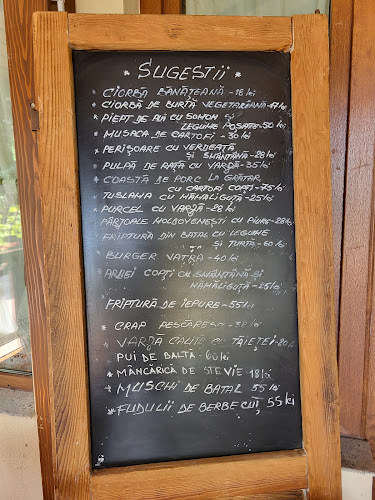 * SUGESTII *
* CIORBĂ BĂNĂȚEANĂ - 18 lei
* CIORBĂ DE BURTĂ VEGETARIANĂ - 17 lei
* PIEPT DE PUI CU SOMON ȘI
LEGUME POȘATE - 50 lei
* MUSACA DE CARTOFI - 30 lei
* PERIȘOARE CU VERDEAȚĂ
ȘI SMÂNTÂNĂ - 28 lei
* PULPĂ DE RAȚĂ CU VARZĂ - 35 lei
* COASTĂ DE PORC LA GRĂTAR
CU CARTOFI COPȚI - 75 lei
* TUSLAMA CU MĂMĂLIGUȚĂ - 25 lei
* PURCEL CU VARZĂ - 28 lei
PÂRJOALE MOLDOVENEȘTI CU PIURE - 28 lei
FRIPTURĂ DIN BATAL CU LEGUME
ȘI TURTĂ - 60 lei
* BURGER VATRA - 40 lei
* ARDEI COPȚI CU SMÂNTÂNĂ ȘI
MĂMĂLIGUȚĂ - 25 lei
FRIPTURĂ DE IEPURE - 55 lei
* CRAP PESCĂRESC - 38 lei
* VARZĂ CALITĂ CU TĂIEȚEI - 20 lei
PUI DE BALTĂ - 60 lei
* MÂNCĂRICĂ DE STEVIE 18 lei
* MUSCHI DE BATAL 55 lei
* FUDULII DE BERBECUȚ 55 lei